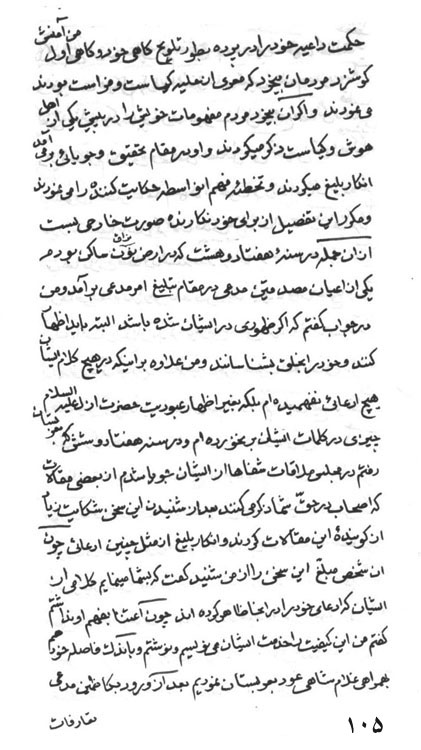 حکمت داعیه خود را در پرده بطور تلویح کاهی خود و کاهی اول من آمن
کوشزد مردمان بیخرد که معری از حلیه کیاست و فراست بودند
می نمودند و اکر آن بیخرد مردم مفهومات خویش را در پیش یکی از اهل
هوش و کیاست ذکر میکردند و او در مقام تحقیق و جویائی برمی آمد
انکار بلیغ میکردند و تخطئه فهم این واسطه حکایت کننده را می نمودند
و مکرر این تفصیل از برای خود نکارنده صورت خارجی بست
از آن جمله در سنهٔ هفتاد و هشت که در ارض نون ساکن بودم
یکی از اعیان مصدقین مدعی در مقام تبلیغ امر مدعی برآمد و من
در جواب کفتم که اکر ظهوری در ایشان شده باشد البته باید اظهار
کنند و خود را بخلق بشناسانند و من علاوه بر اینکه در هیچ کلام ایشان
هیچ ادعائی نفهمیده ام بلکه بغیر اظهار عبودیت حضرت ازل علیه السلام
چیزی در کلمات ایشان برنخورده ام و در سنه هفتاد و شش که بعربستان
رفتم در مجلس ملاقات شفاها از ایشان جویا شدم از بعضی مقالات
که اصحاب در حق شما ذکر می کنند بعد از شنیدن این سخن شکایت زیاد
از کویندهٔ این مقالات کردند و انکار بلیغ از مثل چنین ادعائی چون
آن شخص مبلغ این سخن را از من شنید کفت که بشما مینمایم کلامی از
ایشان که ادعای خود را در آنجا ظاهر کرده اند چون آنست نفهم او نداشتم
کفتم من این کیفیت را خدمت ایشان می نویسم و نوشتم و باندک فاصله خود هم
بهمراهی غلام شاهی عود بعربستان نمودیم بعد از ورود بکاظمین مدعی
تعارفات
۱۰۵